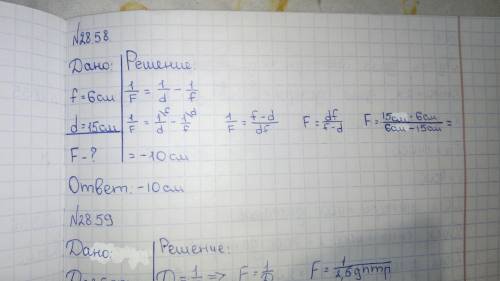 №28.58
Дано: Решение:
f=6см 1/F = 1/d - 1/f
d=15см 1/F = 1\f/d - 1\d/f 1/F = f-d/df F = df/f-d F = 15см·6см/6см-15см =
F-? = -10см
Ответ: -10см
№28.59
Дано: Решение:
D=1/F => F=1/D F=1/2,5дптр